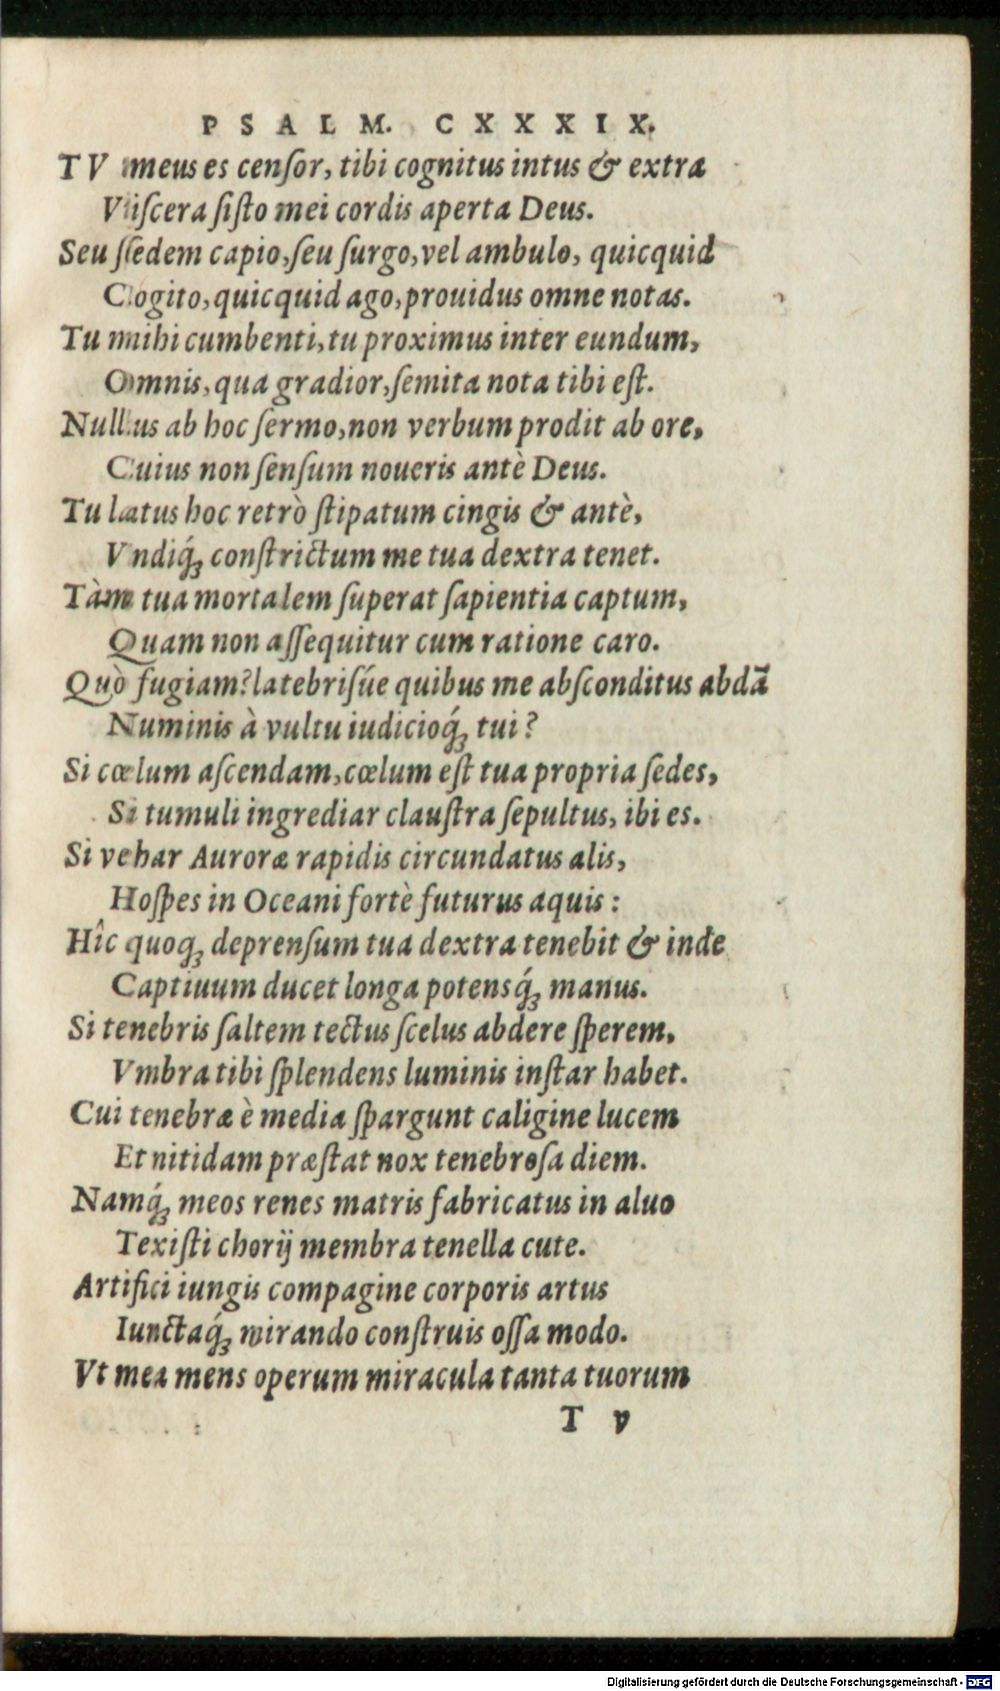 PSALM. CXXXIX.
TV meus es censor, tibi cognitus intus & extra
Viscera sisto mei cordis aperta Deus.
Seu sedem capio, seu surgo, vel ambulo, quicquid
Cogito, quicquid ago, prouidus omne notas.
Tu mihi cumbenti, tu proximus inter eundum,
Omnis, qua gradior, semita nota tibi est.
Nullus ab hoc sermo, non verbum prodit ab ore,
Cuius non sensum noueris antè Deus.
Tu latus hoc retrò stipatum cingis & antè,
Vndiq́; constrictum me tua dextra tenet.
Tàm tua mortalem superat sapientia captum,
Quam non assequitur cum ratione caro.
Quò fugiam? latebrisúe quibus me absconditus abdã
Numinis à vultu iudicioq́; tui?
Si cœlum ascendam, cœlum est tua propria sedes,
Si tumuli ingrediar claustra sepultus, ibi es.
Si vehar Auroræ rapidis circundatus alis,
Hospes in Oceani fortè futurus aquis:
Hîc quoq; deprensum tua dextra tenebit & inde
Captiuum ducet longa potensq́; manus.
Si tenebris saltem tectus scelus abdere sperem,
Vmbra tibi splendens luminis instar habet.
Cui tenebræ è media spargunt caligine lucem
Et nitidam præstat nox tenebrosa diem.
Namq́; meos renes matris fabricatus in aluo
Texisti chorij membra tenella cute.
Artifici iungis compagine corporis artus
Iunctaq́; mirando construis ossa modo.
Vt mea mens operum miracula tanta tuorum
T v
Digitalisierung gefördert durch die Deutsche Forschungsgemeinschaft - DFG